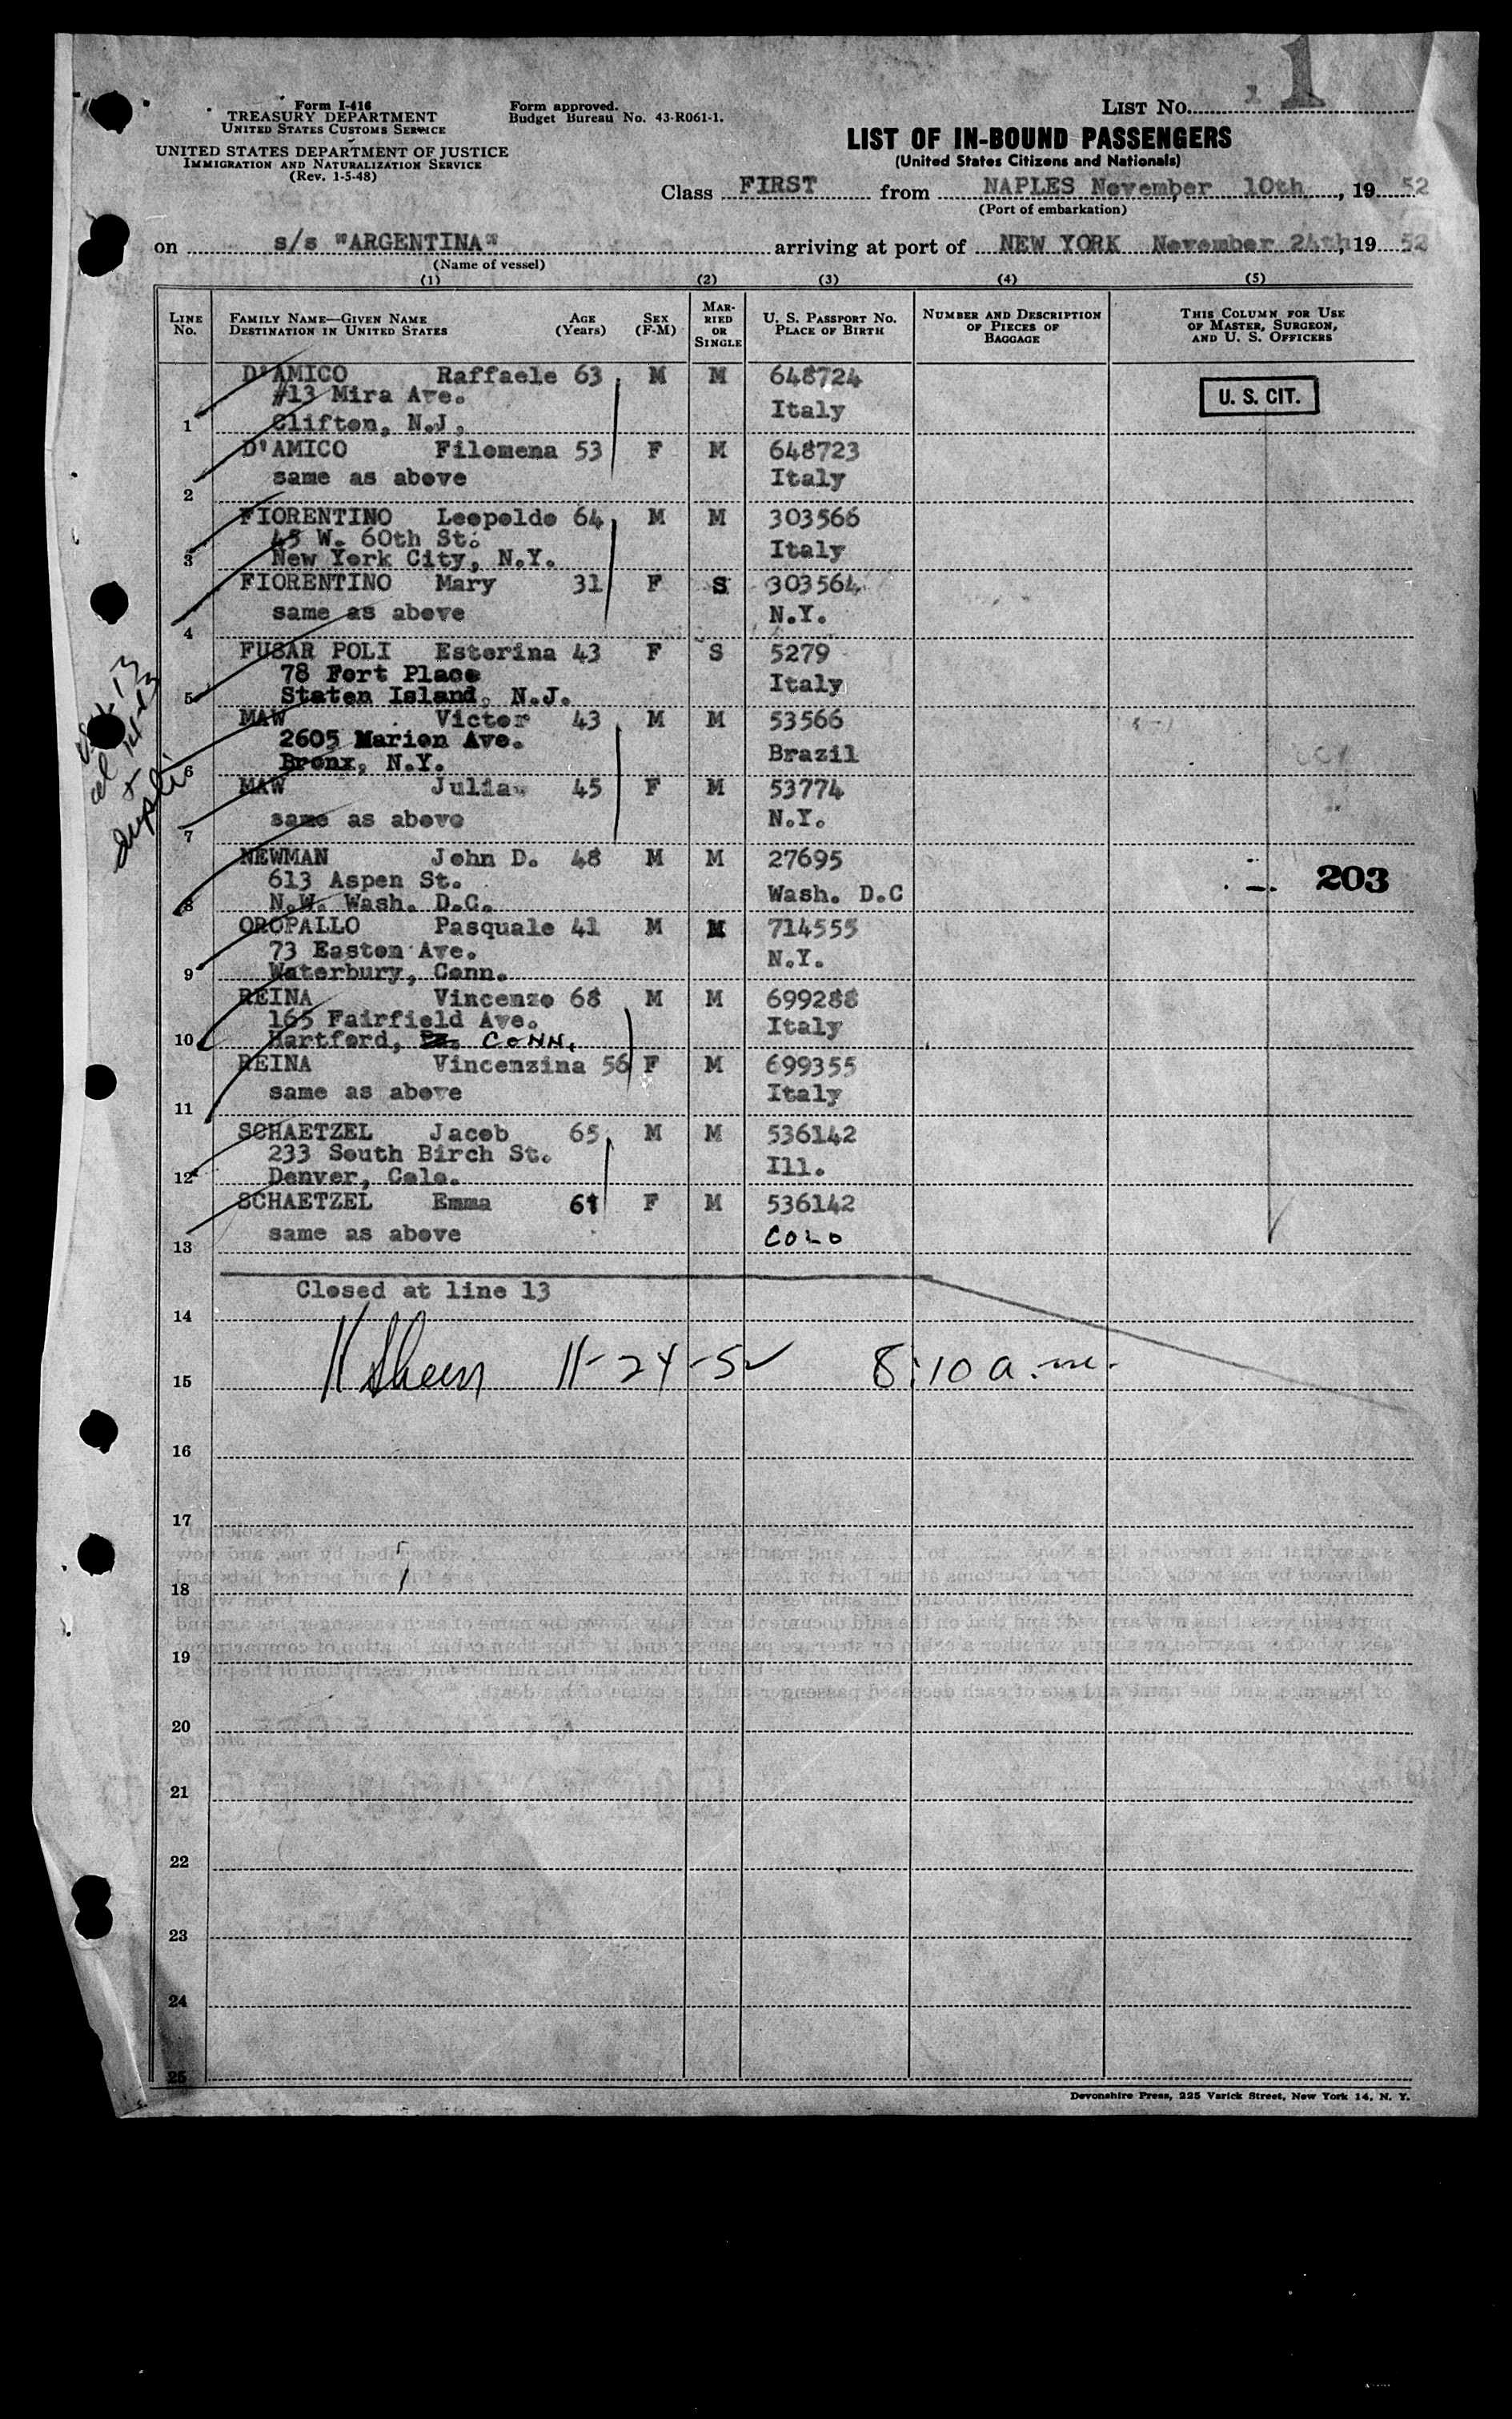 1
Form I-416
TREASURY DEPARTMENT
UNITED STATES CUSTOMS SERVICE
UNITED STATES DEPARTMENT OF JUSTICE
IMMIGRATION AND NATURALIZATION SERVICE
(Rev. 1-5-48)
Form approved.
Budget Bureau No. 43-R061-1.
LIST No.
LIST OF IN-BOUND PASSENGERS
(United States Citizens and Nationals)
Class FIRST from NAPLES November 10th, 19 52
(Port of embarkation)
on s/s "ARGENTINA" arriving at port of NEW YORK November 24th, 19 52
(Name of vessel)
(1) (2) (3) (4) (5)
LINE No. FAMILY NAME—GIVEN NAME DESTINATION IN UNITED STATES AGE (Years) SEX (F-M) MARRIED OR SINGLE U. S. PASSPORT No. PLACE OF BIRTH NUMBER AND DESCRIPTION OF PIECES OF BAGGAGE THIS COLUMN FOR USE OF MASTER, SURGEON, AND U. S. OFFICERS
D'AMICO Raffaele 63 M M 648724
#13 Mira Ave. Italy U. S. CIT.
1 Clifton, N.J.
D'AMICO Filomena 53 F M 648723
2 same as above Italy
FIORENTINO Leopoldo 64 M M 303566
45 W. 60th St. Italy
3 New York City, N.Y.
FIORENTINO Mary 31 F S 303564
4 same as above N.Y.
FUSAR POLI Esterina 43 F S 5279
78 Fort Place Italy
5 Staten Island, N.J.
MAW Victor 43 M M 53566
2605 Marion Ave. Brazil
6 Bronx, N.Y.
MAW Julia 45 F M 53774
7 same as above N.Y.
NEWMAN John D. 48 M M 27695
613 Aspen St. Wash. D.C 203
8 N.W. Wash. D.C.
OROPALLO Pasquale 41 M M 714555
73 Easton Ave. N.Y.
9 Waterbury, Conn.
REINA Vincenzo 68 M M 699288
165 Fairfield Ave. Italy
10 Hartford, CONN.
REINA Vincenzina 56 F M 699355
11 same as above Italy
SCHAETZEL Jacob 65 M M 536142
233 South Birch St. Ill.
12 Denver, Colo.
SCHAETZEL Emma 61 F M 536142
13 same as above COLO
Closed at line 13
14
15 11-24-52 8:10 a.m.
16
17
18
19
20
21
22
23
24
25
Devonshire Press, 225 Varick Street, New York 14, N. Y.